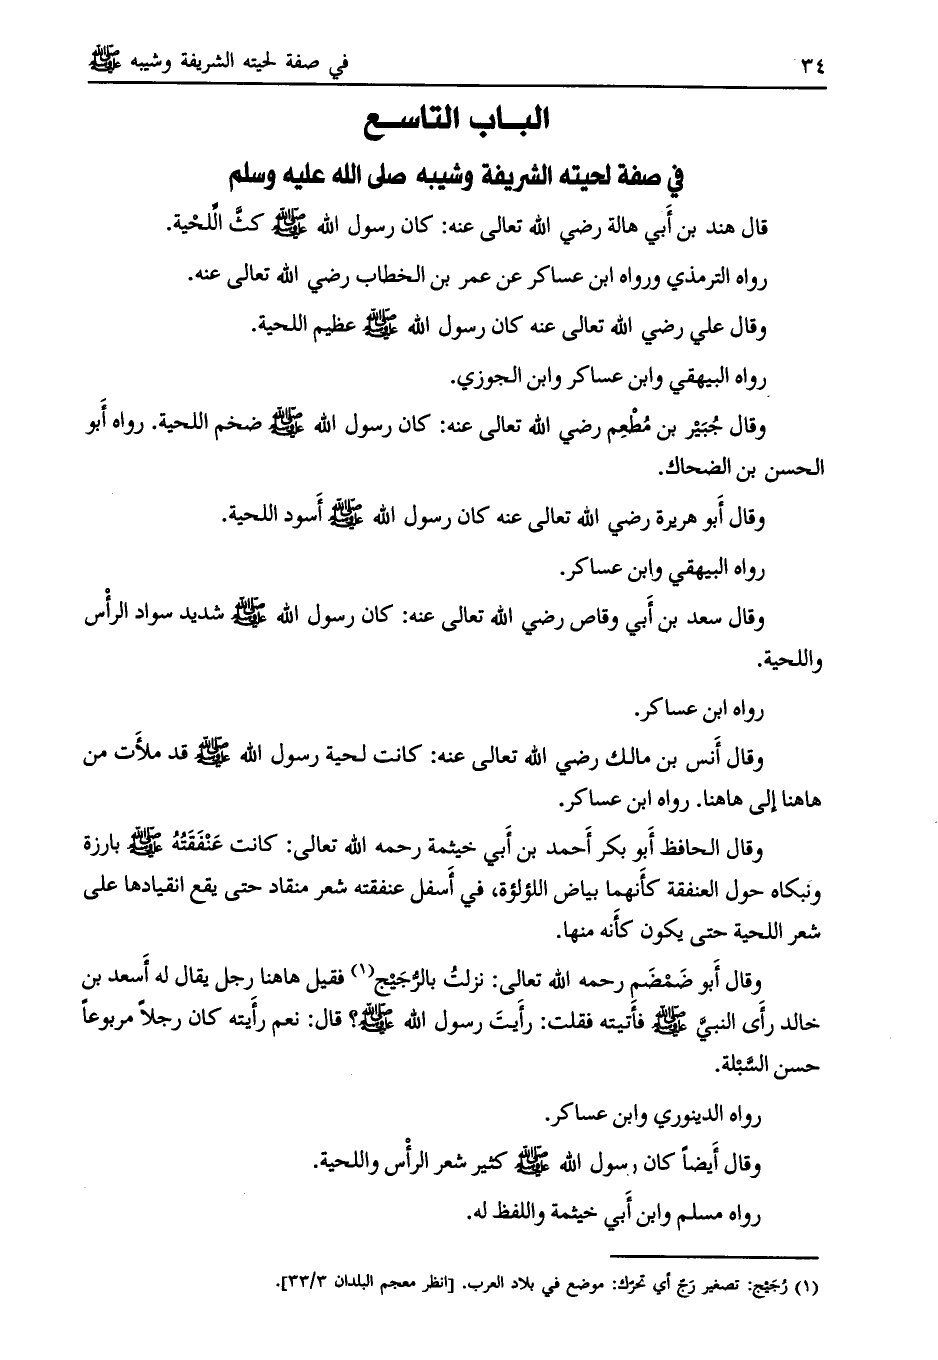 ٣٤ في صفة لحيته الشريفة وشيبه ﷺ
البـــاب التاســـع
في صفة لحيته الشريفة وشيبه صلى الله عليه وسلم
قال هند بن أَبي هالة رضي الله تعالى عنه: كان رسول الله ﷺ كثَّ الَّلحْية.
رواه الترمذي ورواه ابن عساكر عن عمر بن الخطاب رضي الله تعالى عنه.
وقال علي رضي الله تعالى عنه كان رسول الله ﷺ عظيم اللحية.
رواه البيهقي وابن عساكر وابن الجوزي.
وقال جُبَيْر بن مُطْعِم رضي الله تعالى عنه: كان رسول الله ﷺ ضخم اللحية. رواه أَبو
الحسن بن الضحاك.
وقال أَبو هريرة رضي الله تعالى عنه كان رسول الله ﷺ أَسود اللحية.
رواه البيهقي وابن عساكر.
وقال سعد بن أَبي وقاص رضي الله تعالى عنه: كان رسول الله ﷺ شديد سواد الرأْس
واللحية.
رواه ابن عساكر.
وقال أَنس بن مالك رضي الله تعالى عنه: كانت لحية رسول الله ﷺ قد ملأَت من
هاهنا إلى هاهنا. رواه ابن عساكر.
وقال الحافظ أَبو بكر أَحمد بن أَبي خيثمة رحمه الله تعالى: كانت عَنْفَقَتُهُ ﷺ بارزة
ونبكاه حول العنفقة كأَنهما بياض اللؤلؤة، في أَسفل عنفقته شعر منقاد حتى يقع انقيادها على
شعر اللحية حتى يكون كأَنه منها.
وقال أَبو ضَمْضَم رحمه الله تعالى: نزلتُ بالرُّجَيْج(١) فقيل هاهنا رجل يقال له أَسعد بن
خالد رأَى النبيَّ ﷺ فأَتيته فقلت: رأَيتَ رسول الله ﷺ؟ قال: نعم رأَيته كان رجلاً مربوعاً
حسن السَّبْلة.
رواه الدينوري وابن عساكر.
وقال أَيضاً كان رسول الله ﷺ كثير شعر الرأْس واللحية.
رواه مسلم وابن أَبي خيثمة واللفظ له.
(١) رُجَيْج: تصغير رَجّ أي تحرّك: موضع في بلاد العرب. [انظر معجم البلدان ٣٣/٣].